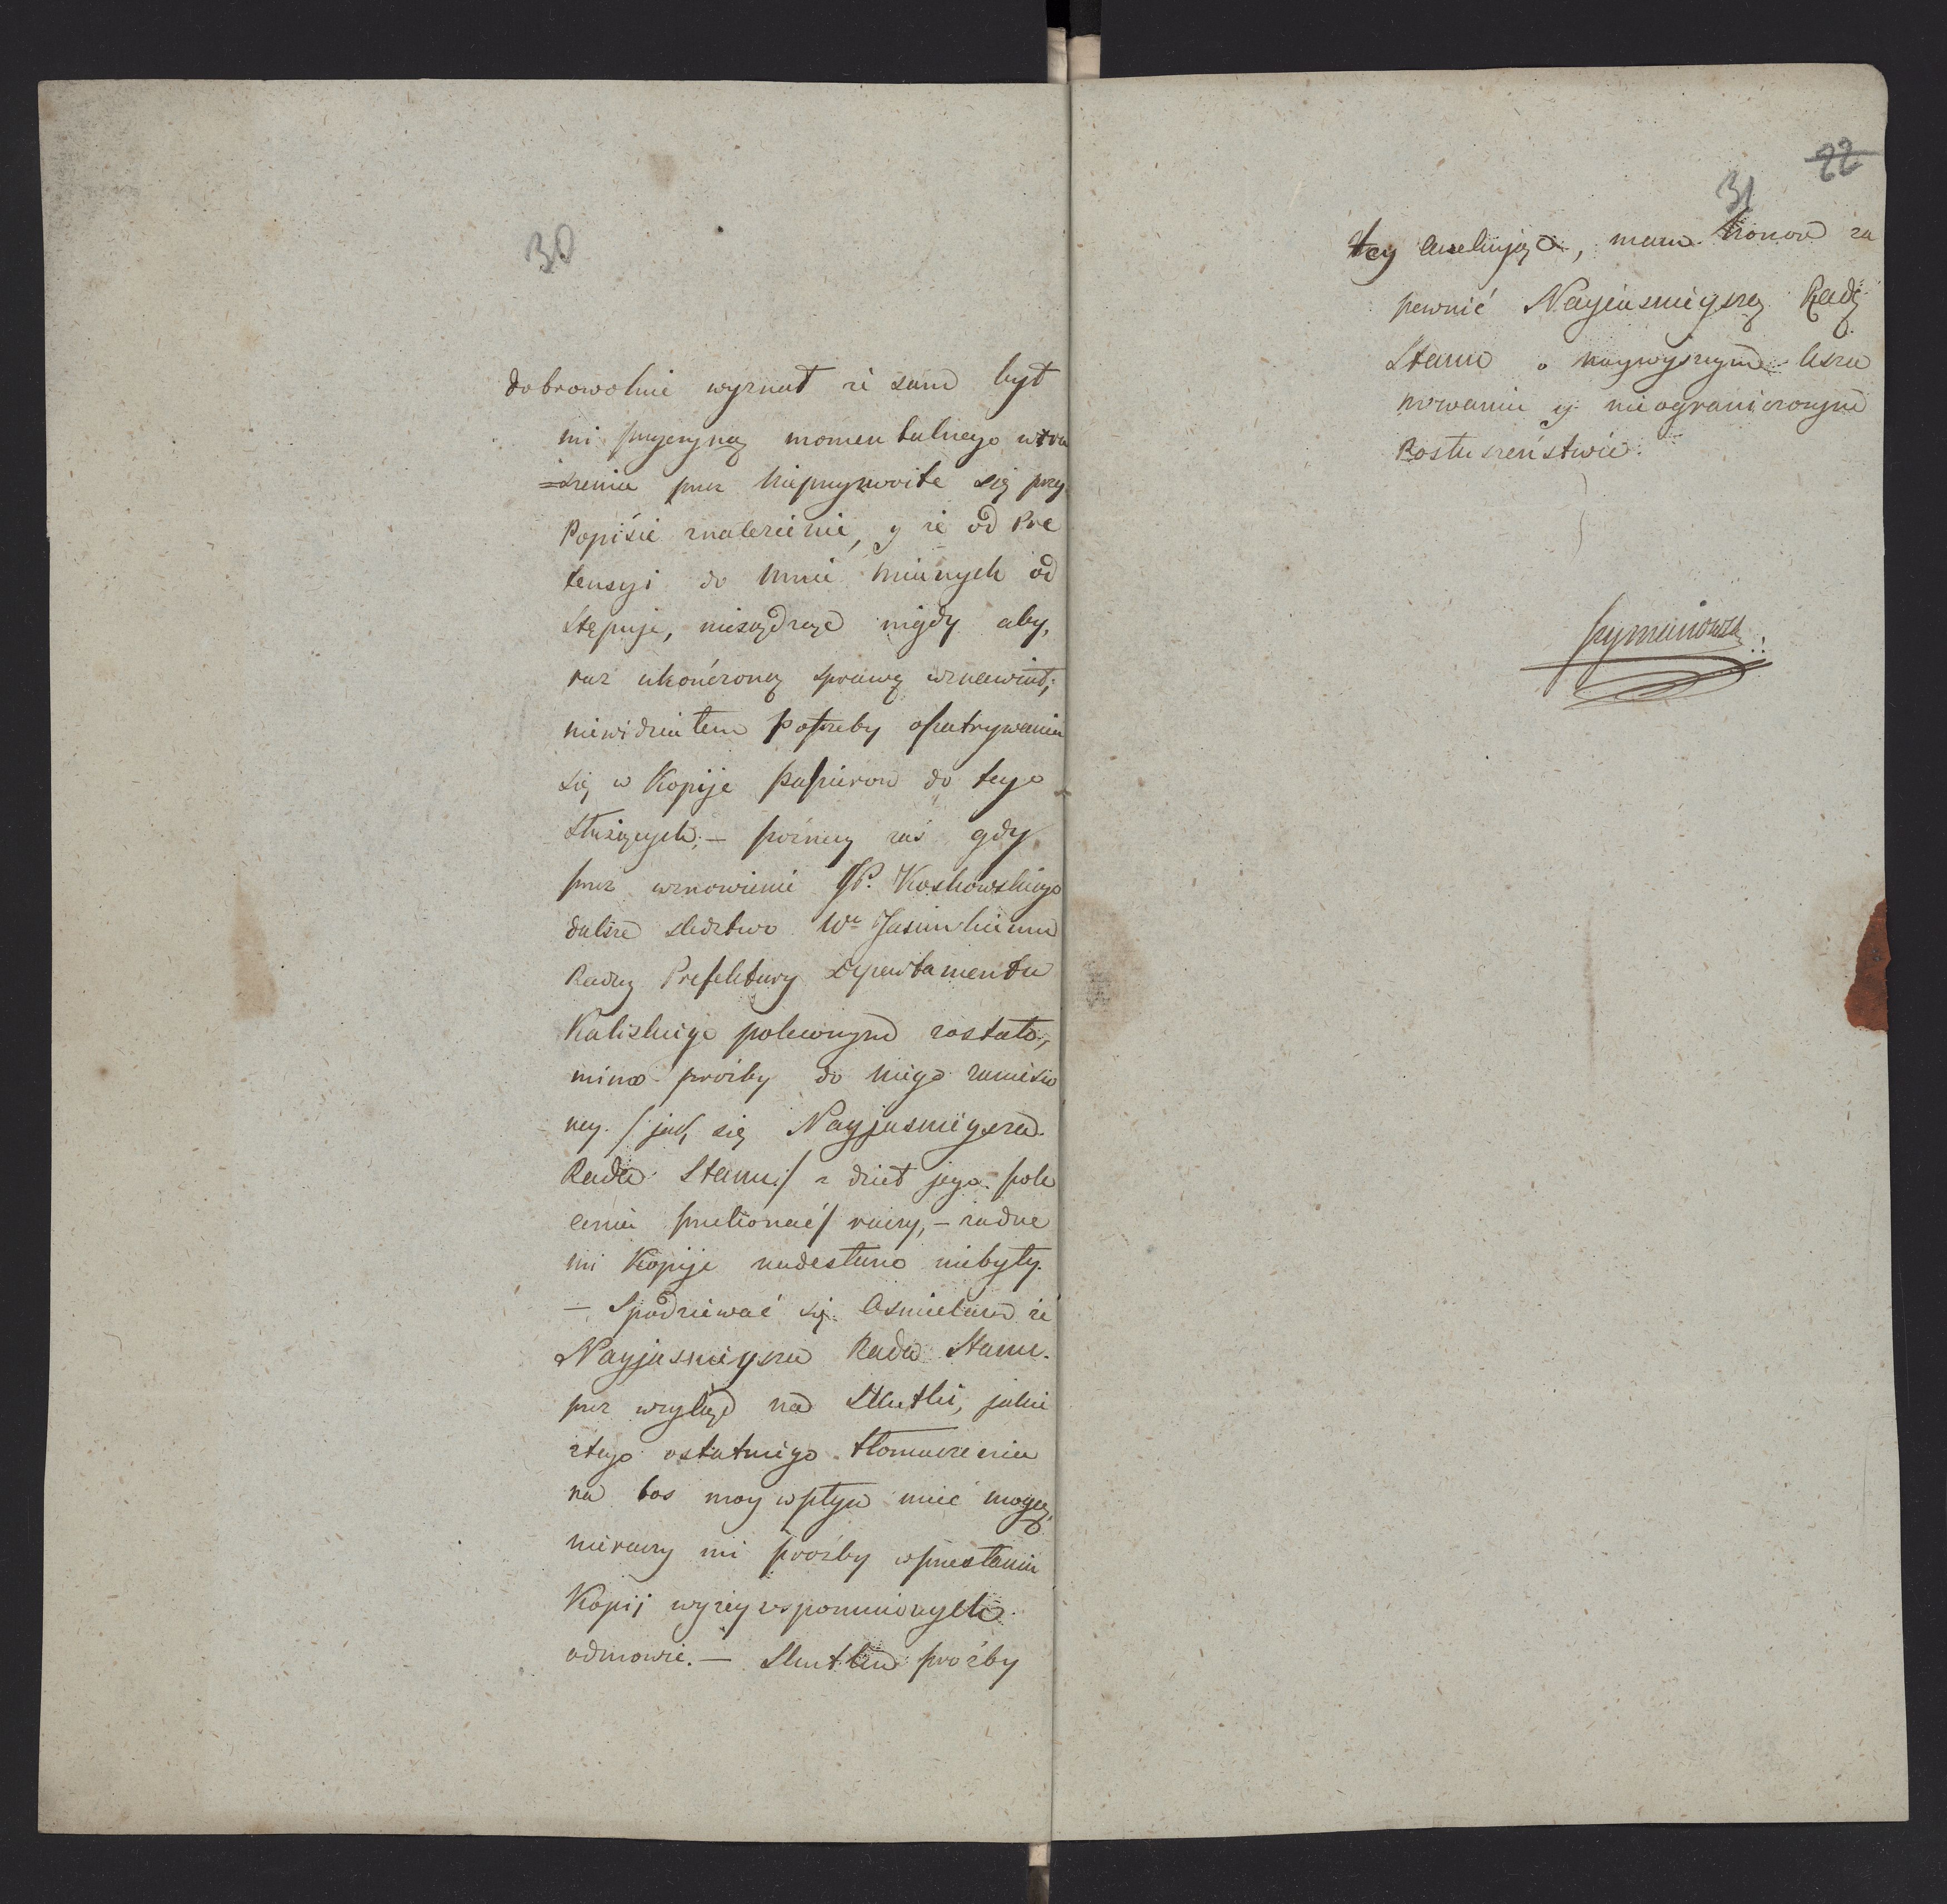 30
dobrowolnie wyznał że sam był
mi przyczyną momentalnego wzru
=szenia przez nieprzyzwoite się przy
Popisie znalezienie, y że od Pre
tensyi do mnie mianych od
stępuje, niesądząc nigdy aby,
raz ukończoną sprawę wznawiał;
niewidziałem potrzeby opatrywania
się w Kopije papierow do tego
służących; — pozniey zaś gdy
przez wznowienie JP. Koskowskiego
dalsze sledztwo Wu Jasinskiemu
Radzcy Prefektury Departamentu
Kaliskiego poleconym zostało,
mimo prośby do niego zaniesio
ney. / jak się Nayjasnieysza
Rada Stanu / z dzieł jego pole
cenia przekonać / raczy, — żadne
mi Kopije nadesłane niebyły.
— Spodziewać się Osmielam że
Nayjasnieysza Rada Stanu.
przez wzgląd na Skutki, jakie
ztego ostatniego tłomaczenia
na los moy wpływ mieć mogą,
nieraczy mi prośby oprzesłanie
Kopij wyżey wspomnionych
odmowić. — Skutku prośby
22
31
tey czekając, mam honor za
pewnić Nayjasnieyszą Radę
Stanu o naywyższym Usza
nowaniu y nieograniczonym
Posłuszeństwie.
Szymanowski